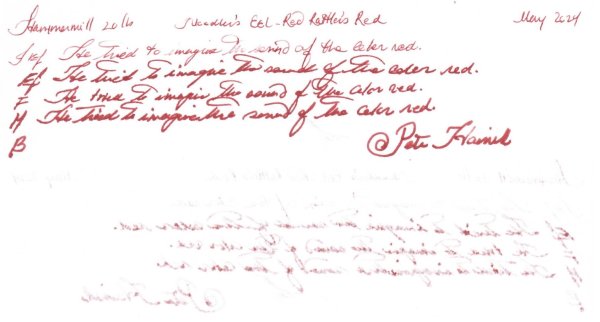 Hammermill 20lb Noodler's EEL-Red Rattler's Red May 2024
XEF He tried to imagine the sound of the color red.
EF He tried to imagine the sound of the color red.
F He tried to imagine the sound of the color red.
M He tried to imagine the sound of the color red.
B
Pete Hamill